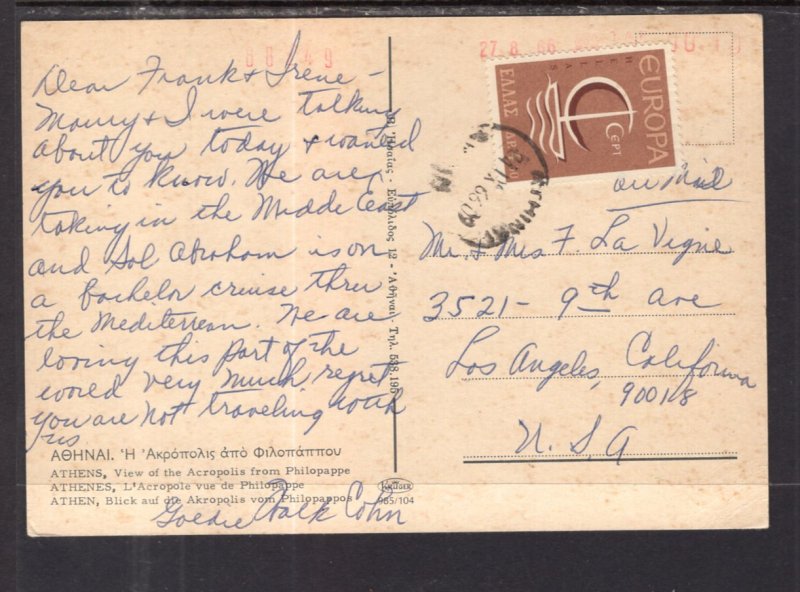 Dear Frank & Irene -
Maury & I were talking
about you today & wanted
you to know. We are
taking in the Middle East
and Sol Abraham is on
a bachelor cruise thru
the Mediterrean. We are
loving this part of the
world very much regret
you are not traveling with
us
Goldie Falk Cohn
ΑΘΗΝΑΙ. Ἡ Ἀκρόπολις ἀπὸ Φιλοπάππου
ATHENS, View of the Acropolis from Philopappe
ATHENES, L'Acropole vue de Philopappe
ATHEN, Blick auf die Akropolis vom Philopappos
KRÜGER
985/104
12 - Ἀθῆναι Τηλ. 538.195
27.8.66
EUROPA
HELLAS
ΕΛΛΑΣ
CEPT
air Mail
Mr & Mrs F. La Vigne
3521- 9th Ave
Los Angeles, California
90018
U.S.A